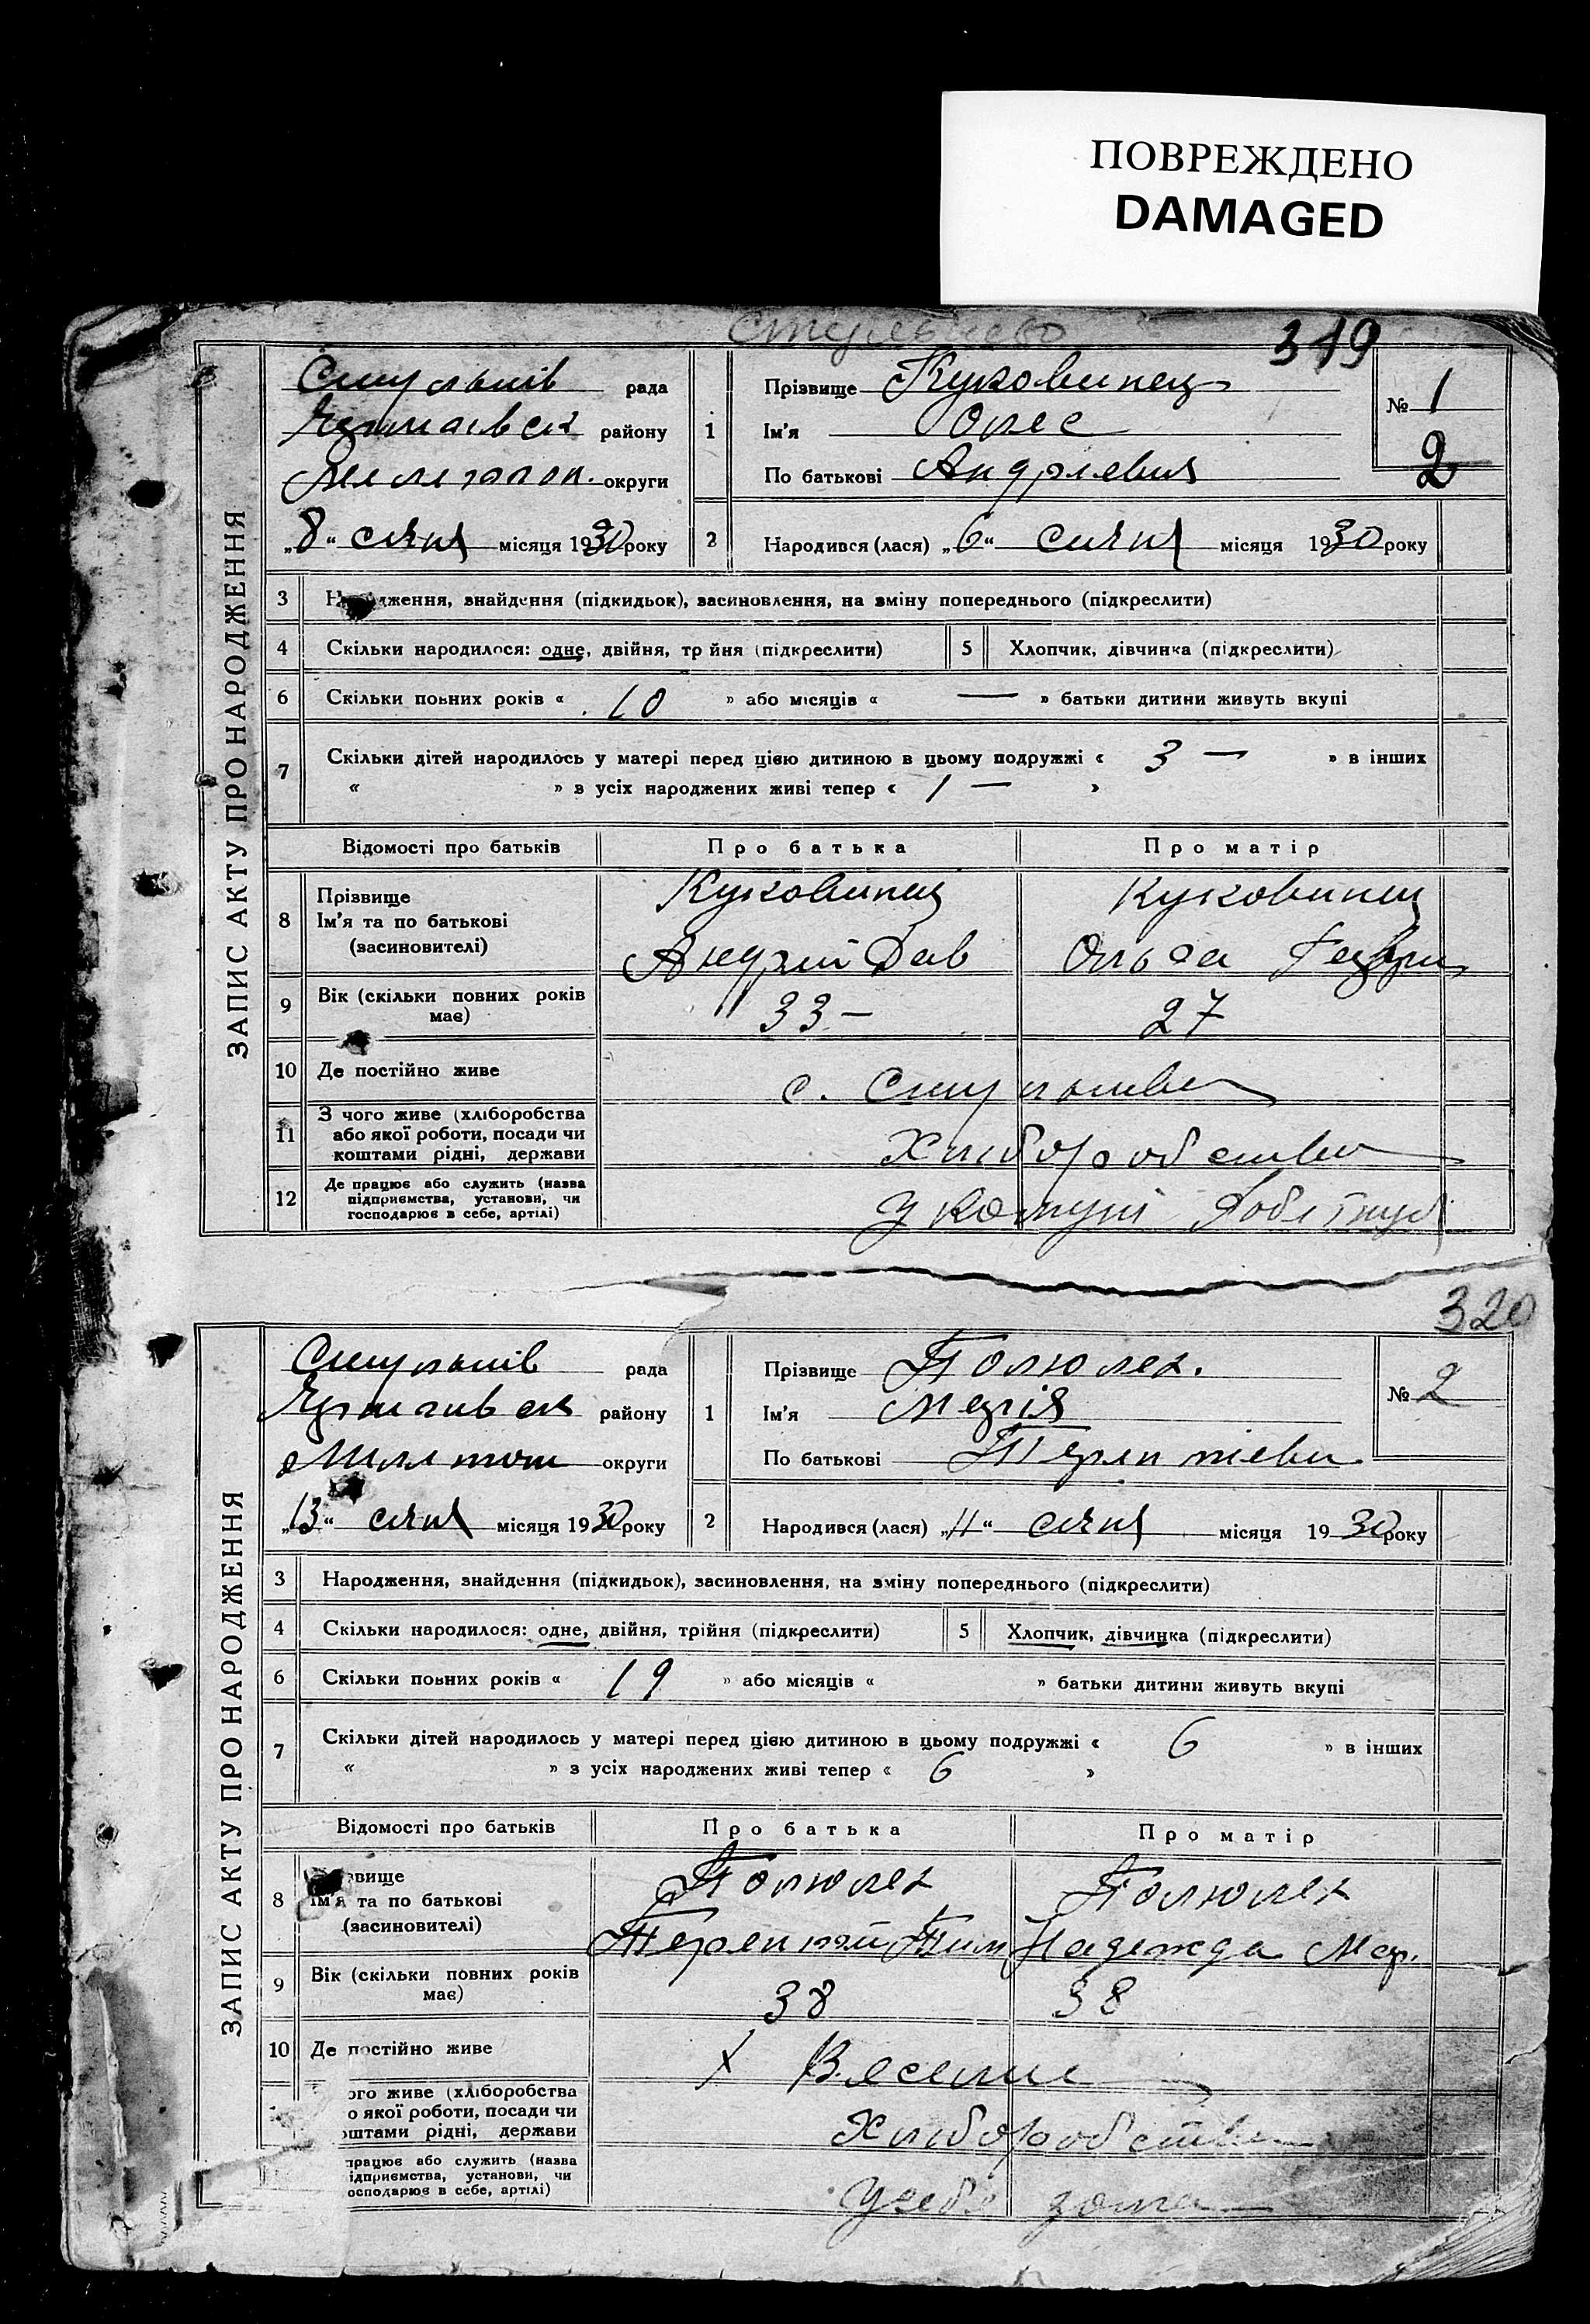 ПОВРЕЖДЕНО
DAMAGED
349
ЗАПИС АКТУ ПРО НАРОДЖЕННЯ
рада
району
округи
„8“ січня місяця 1930 року
1
Прізвище Куковинец
Ім'я
По батькові Андрієвич
№ 1
2
2
Народився (лася) „6“ січня місяця 1930 року
3
дження, знайдення (підкидьок), засиновлення, на зміну попереднього (підкреслити)
4
Скільки народилося: одне, двійня, тр йня (підкреслити)
5
Хлопчик, дівчинка (підкреслити)
6
Скільки повних років « 10 » або місяців « — » батьки дитини живуть вкупі
7
Скільки дітей народилось у матері перед цією дитиною в цьому подружжі « 3 — » в інших
« » в усіх народжених живі тепер « 1 — »
Відомості про батьків
Про батька
Про матір
8
Прізвище
Ім'я та по батькові
(засиновителі)
Куковинец
Андрій Дав
Куковинец
Ольга
9
Вік (скільки повних років
має)
33 —
27
10
Де постійно живе
с.
11
З чого живе (хліборобства
або якої роботи, посади чи
коштами рідні, держави
Хліборобство
12
Де працює або служить (назва
підприємства, установи, чи
господарює в себе, артілі)
у
320
ЗАПИС АКТУ ПРО НАРОДЖЕННЯ
рада
району
округи
„13“ січня місяця 1930 року
1
Прізвище Полюлях.
Ім'я Марія
По батькові Терентіевн
№ 2
2
Народився (лася) „11“ січня місяця 1930 року
3
Народження, знайдення (підкидьок), засиновлення, на зміну попереднього (підкреслити)
4
Скільки народилося: одне, двійня, трійня (підкреслити)
5
Хлопчик, дівчинка (підкреслити)
6
Скільки повних років « 19 » або місяців « » батьки дитини живуть вкупі
7
Скільки дітей народилось у матері перед цією дитиною в цьому подружжі « 6 » в інших
« » з усіх народжених живі тепер « 6 »
Відомості про батьків
Про батька
Про матір
8
вище
Ім'я та по батькові
(засиновителі)
Полюлях
Терентій Тим
Полюлях
Надежда Мар.
9
Вік (скільки повних років
має)
38
38
10
Де постійно живе
х Веселе
ого живе (хліборобства
о якої роботи, посади чи
оштами рідні, держави
Хліборобство
працює або служить (назва
ідприємства, установи, чи
осподарює в себе, артілі)
у себе дома